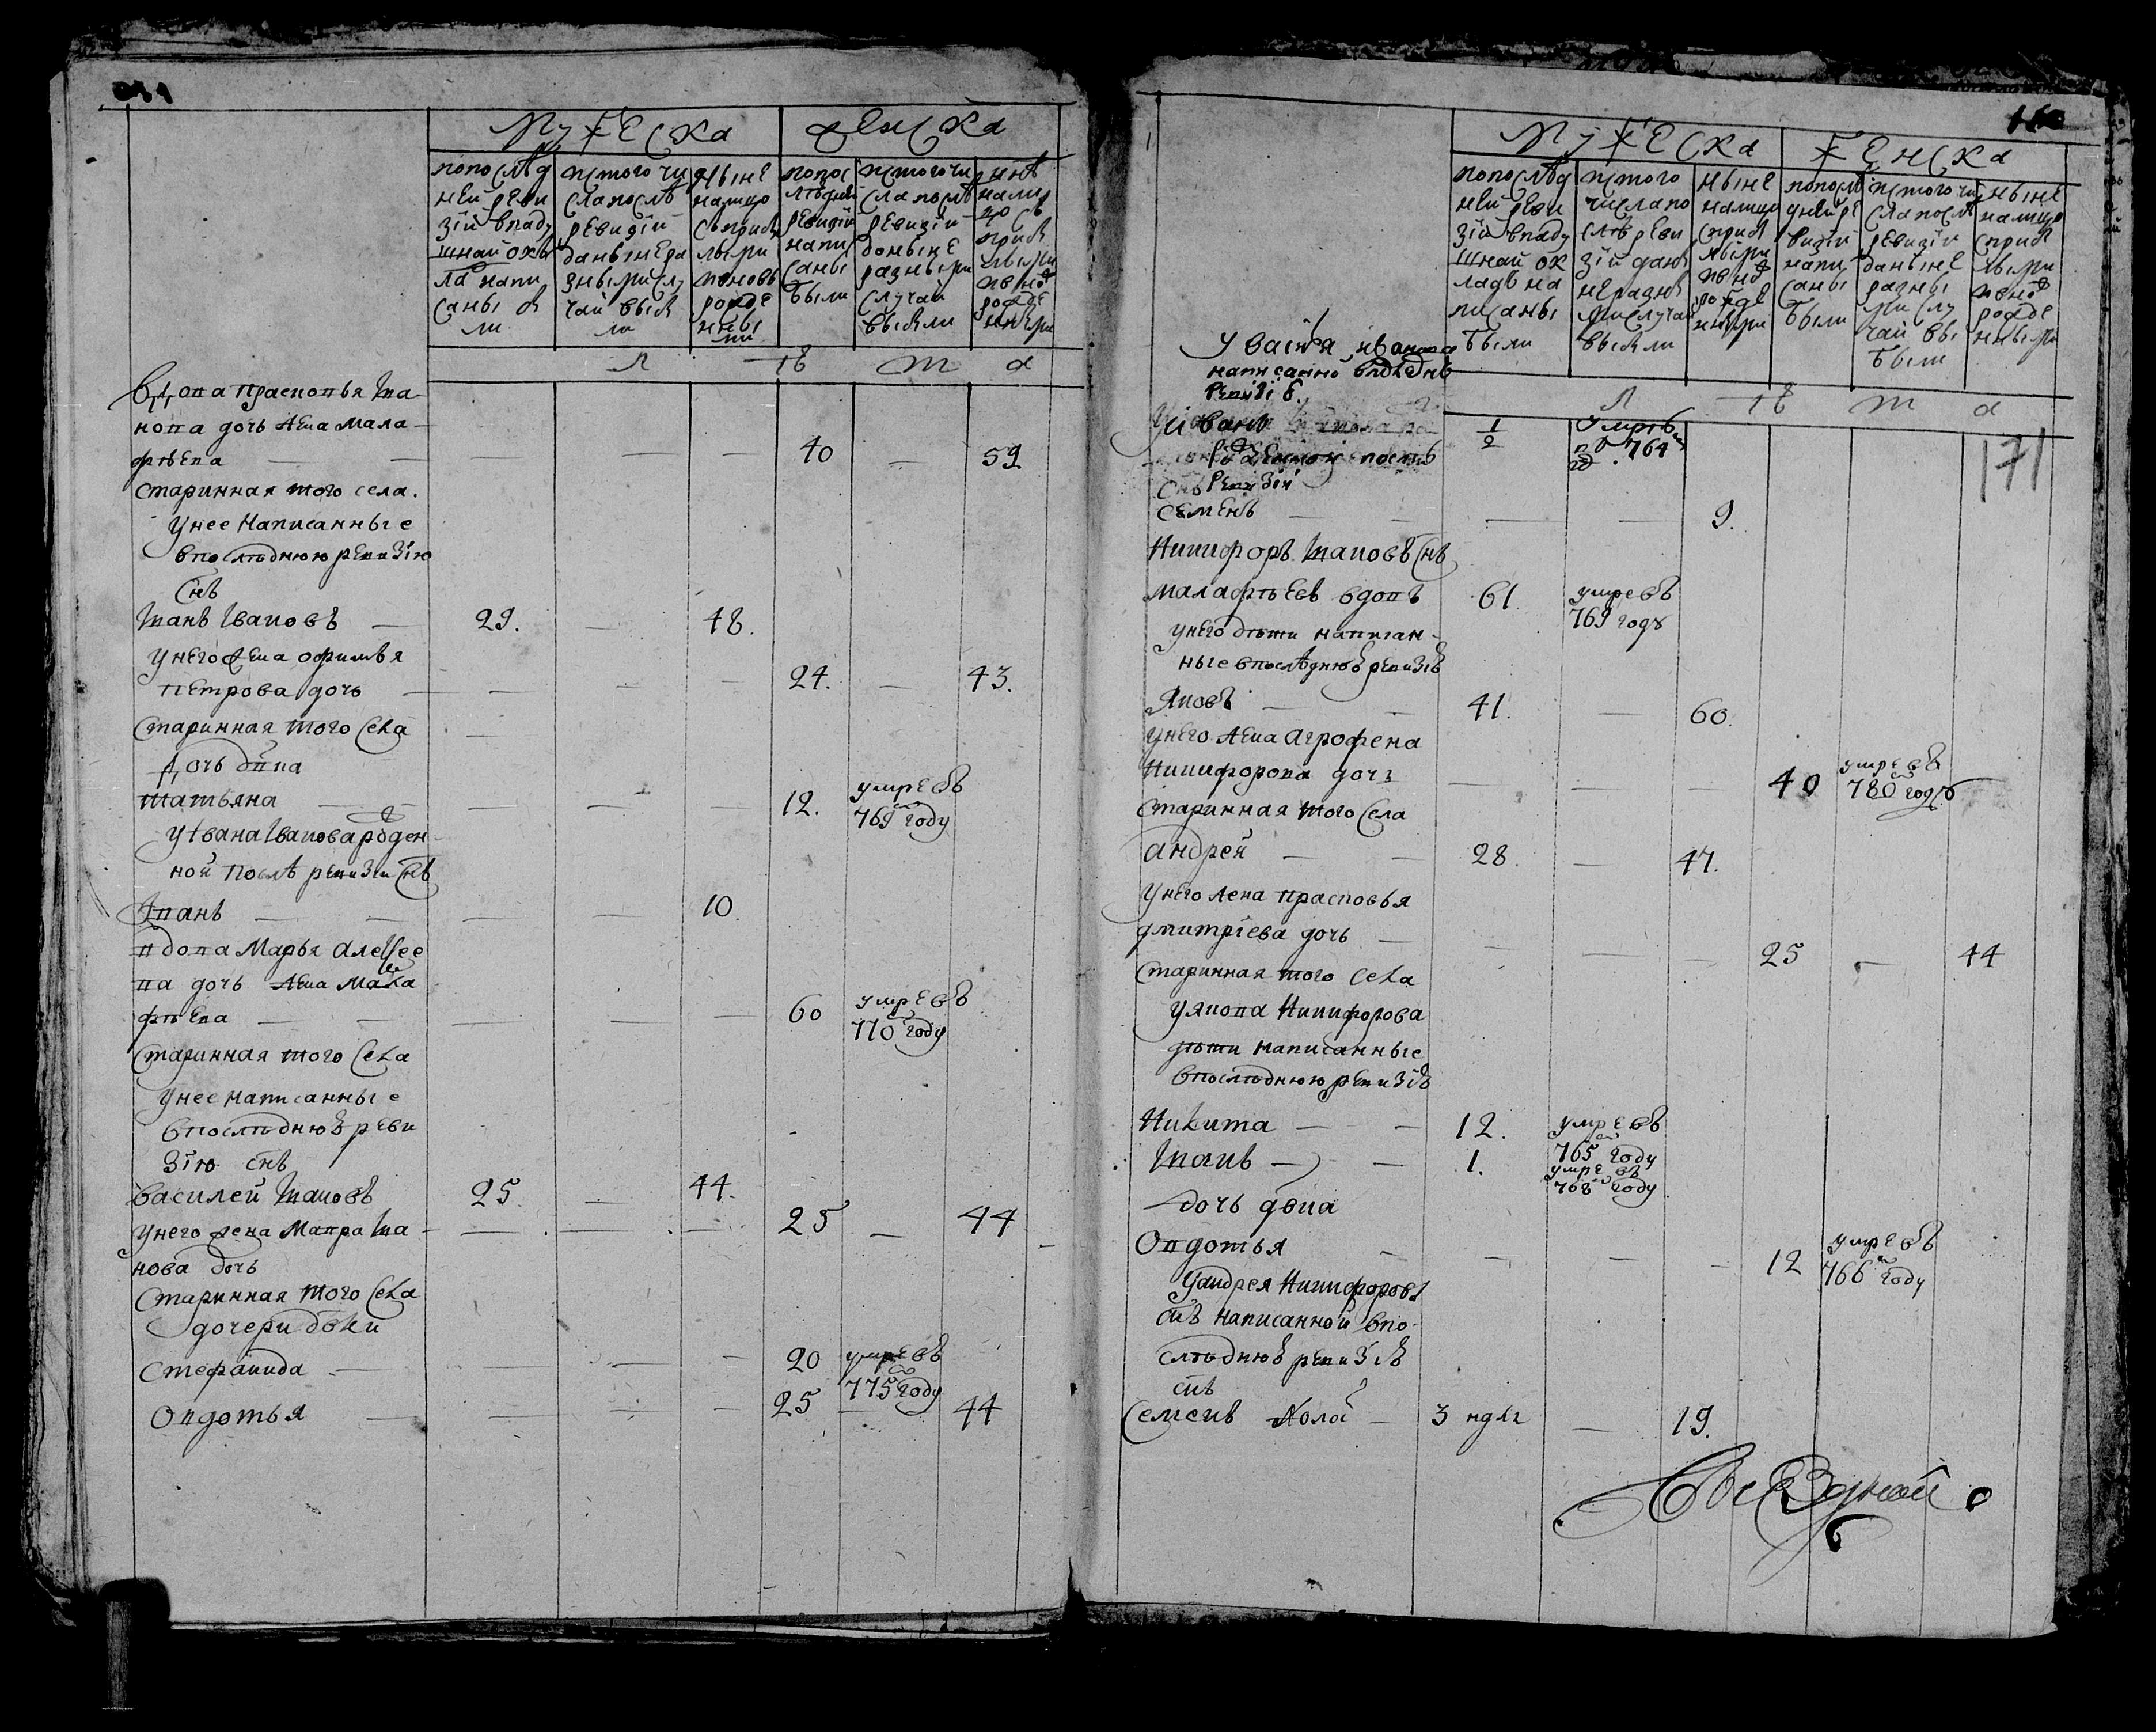 Мужеска
Женска
по послед
ней реви
зїи в поду
шной окъ
ла напи
саны бы
ли
ис того чи
сла послѣ
ревизїи
до ныне ра
зными слу
чаи выбы
ли
ныне
налицо
съ прибы
лыми
и вновь
рожде
нными
по пос
лѣдней
ревизїи
напи
саны
были
ис того чи
сла послѣ
ревизїи
до ныне
разными
случаи
выбыли
нынѣ
нали
цо съ
прибы
лыми
и вново
рожде
нными
л ѣ т а
Вдова Прасковья Ива
нова дочь жена Мала
фѣева — — — — — 40 — 59
старинная того села.
у нее написанные
в последнюю ревизїю
снъ
Иванъ Ивановъ — 29. — 48.
у него жена Офимья
Петрова дочь — — — — 24. — 43.
старинная того села
дочь девка
Татьяна — — — — 12. умре въ
769м году
у Ивана Иванова рожден
ной послѣ ревизїи снъ
Иванъ — — — — 10.
вдова Марья Алексее
ва дочь жена Мала
фѣева — — — — — 60 умре въ
770м году
старинная того села
у нее написанные
в последнюю реви
зїю снъ
Василей Ивановъ 25. — 44.
у него жена Мавра Ива — — — 25 — 44
нова дочь
старинная того села
дочери девки
Стефанида — — — — 20 умре въ
775м году
Овдотья — — — — — 25 — 44
Мужеска
Женска
по послед
ней реви
зїи в поду
шной ок
ладъ на
писаны
были
ис того
числа по
слѣ реви
зїи до ны
не разны
ми случаи
выбыли
ныне
налицо
с прибы
лыми
и вно
рожде
нными
по послѣ
дней ре
визїи
напи
саны
были
ис того чи
сла послѣ
ревизїи
до ныне
разны
ми слу
чаи вы
были
ныне
налицо
с прибы
лыми
и вново
рожде
нными
л ѣ т а
171
у Василья Иванова
написанно в последнѣ
ревизїе
Иванъ 1/2 умрѣ въ
764м
рожденной послѣ
снъ ревизїи
Семенъ — — — — 9.
Никифоръ Ивановъ снъ
Малафѣевъ вдовъ 61. умре въ
769 году
у него дѣти написан
ные в последнюю ревизїю
Яковъ — — 41. — 60.
у него жена Агрофена
Никифорова дочь — — — 40 умре въ
780м году
старинная того села
Андрей — — 28. — 47.
у него жена Прасковья
Дмитрїева дочь — — — — 25 — 44
старинная того села
у Якова Никифорова
дѣти написанные
в последнюю ревизїю
Никита — — 12. умре въ
765м году
Иванъ — — 1. умре въ
768м году
дочь девка
Овдотья — — — — 12 умре въ
766м году
у Андрея Никифорова
снъ написанной в по
следнюю ревизїю
снъ
Семенъ — 3 нд̃ли — 19.